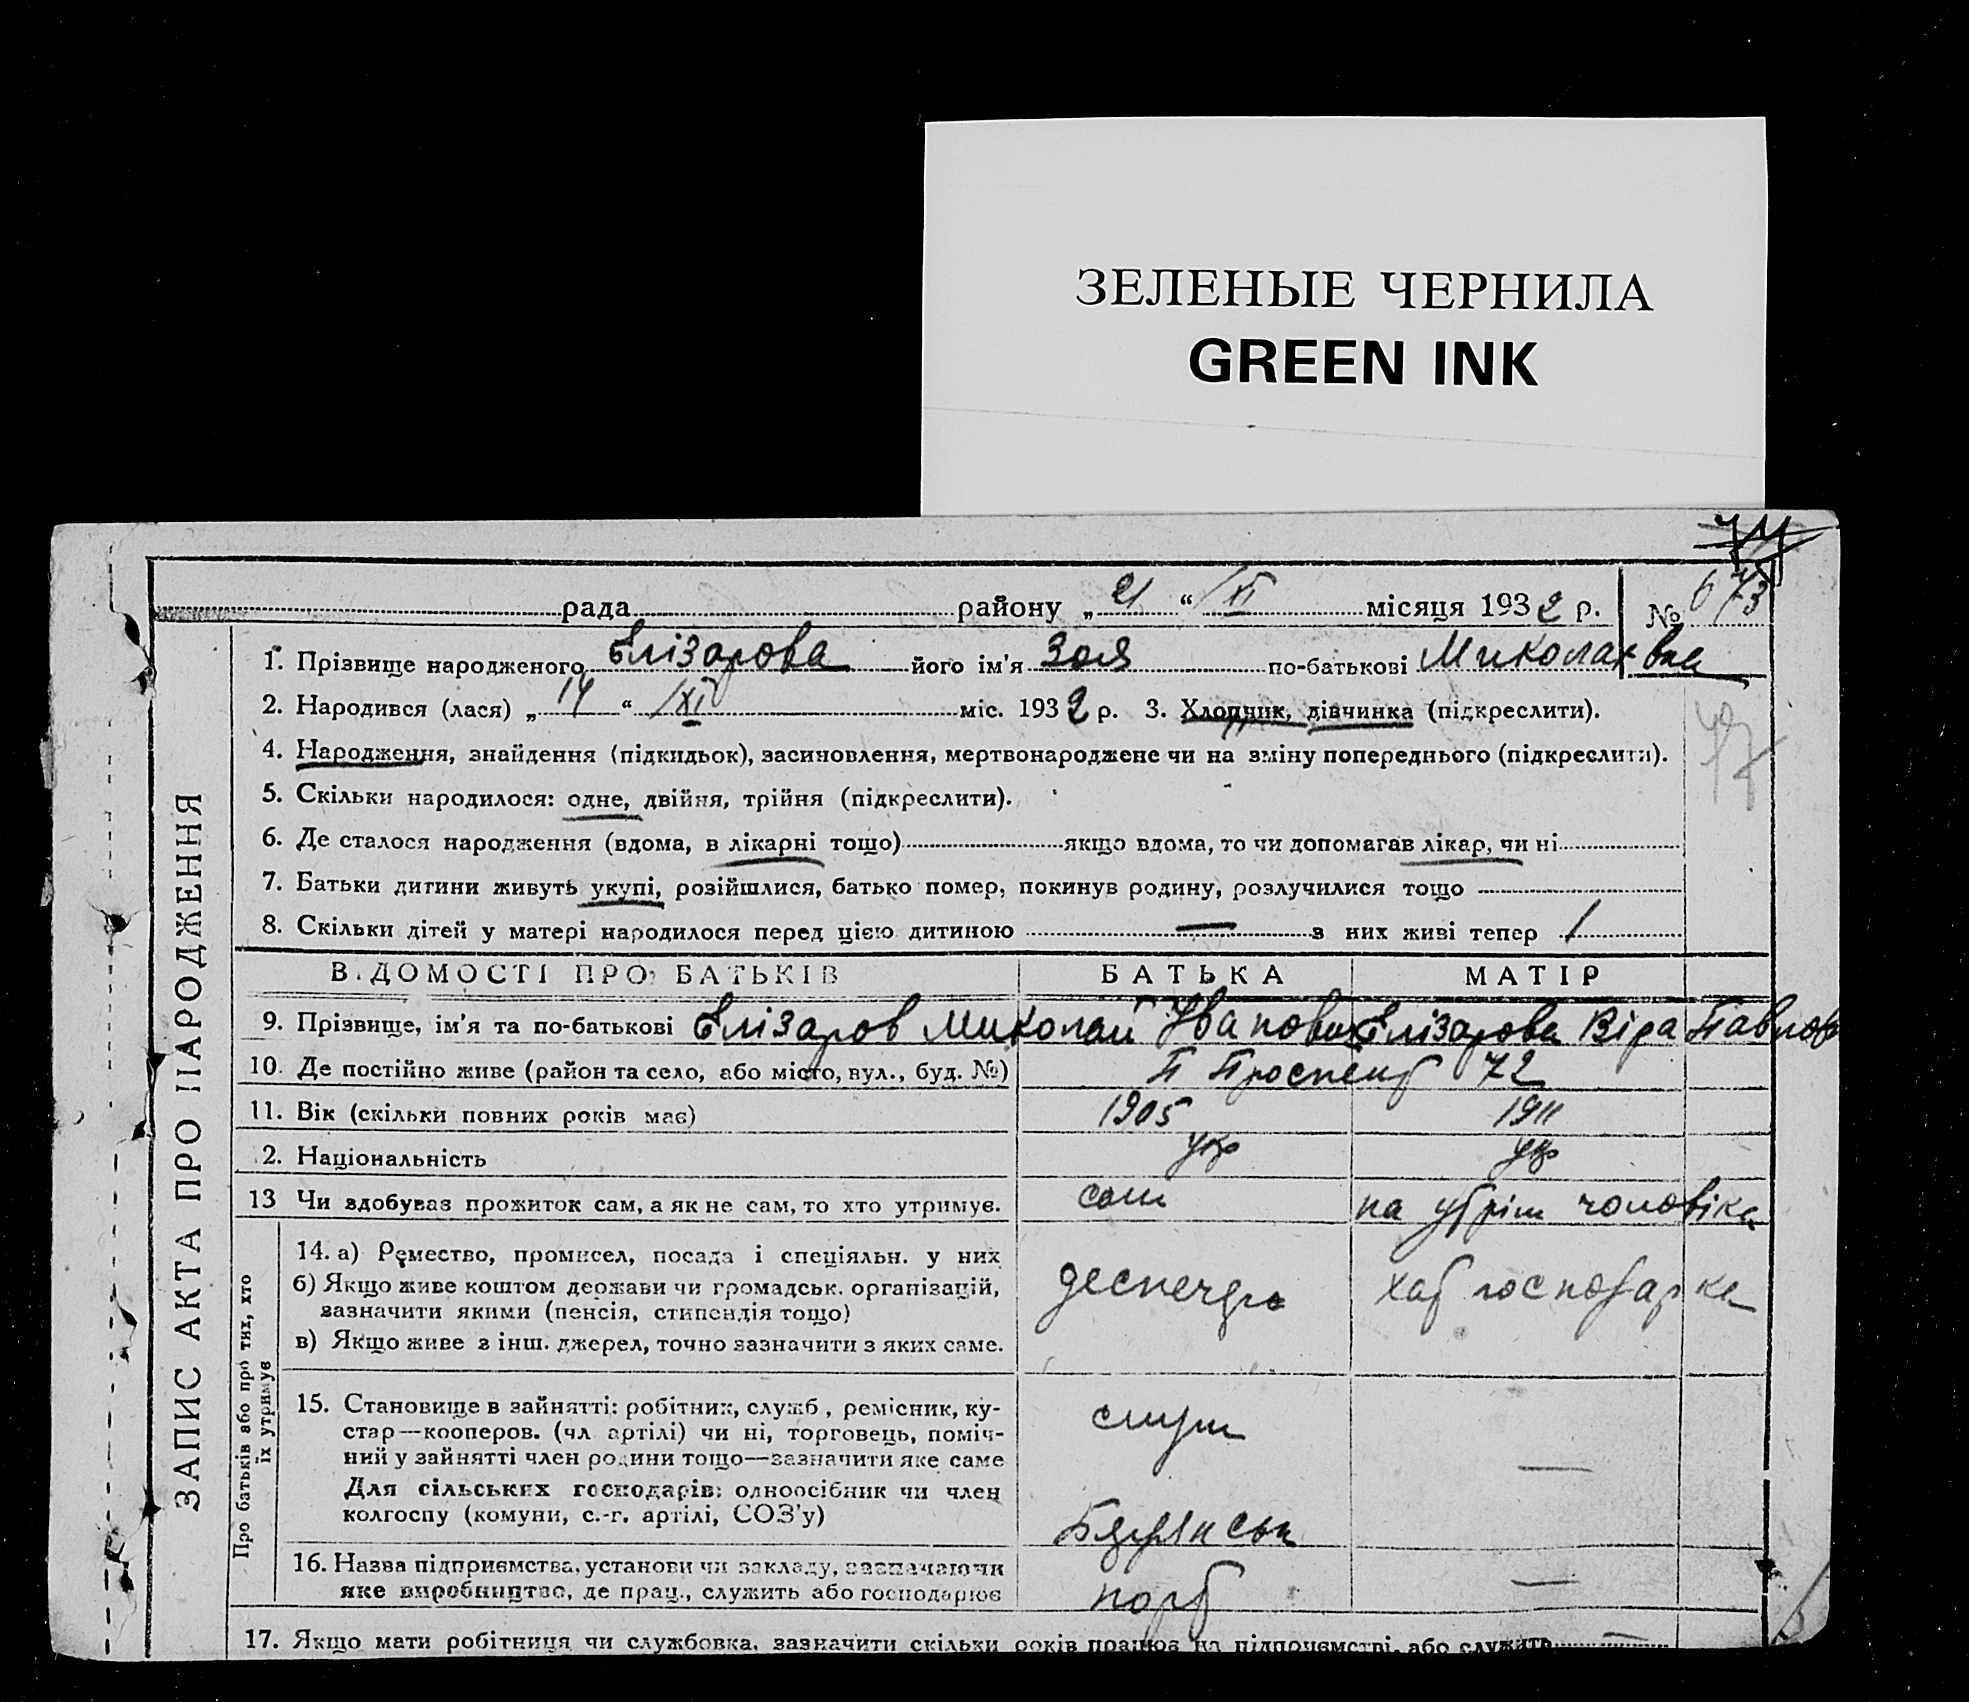 ЗЕЛЕНЫЕ ЧЕРНИЛА
GREEN INK
74
рада району „ 21 “ /XI місяця 1932 р. № 673
1. Прізвище народженого Єлізарова його ім'я Зоя по-батькові Миколаївна
2. Народився (лася) „ 14 “ /XI міс. 1932 р. 3. Хлопчик, дівчинка (підкреслити).
47
4. Народження, знайдення (підкидьок), засиновлення, мертвонароджене чи на зміну попереднього (підкреслити).
5. Скільки народилося: одне, двійня, трійня (підкреслити).
6. Де сталося народження (вдома, в лікарні тощо) якщо вдома, то чи допомагав лікар, чи ні
7. Батьки дитини живуть укупі, розійшлися, батько помер, покинув родину, розлучилися тощо
8. Скільки дітей у матері народилося перед цією дитиною — з них живі тепер 1
ЗАПИС АКТА ПРО НАРОДЖЕННЯ
В.ДОМОСТІ ПРО БАТЬКІВ БАТЬКА МАТІР
9. Прізвище, ім'я та по-батькові Єлізаров Миколай Іванович Єлізарова Віра Павлов
10. Де постійно живе (район та село, або місто, вул., буд. №) П Проспект 72
11. Вік (скільки повних років має) 1905 1911
2. Національність укр укр
13 Чи здобував прожиток сам, а як не сам, то хто утримує. сам на утрім чоловіка
Про батьків або про тих, хто
їх утримує
14. а) Ремество, промисел, посада і спеціяльн. у них
б) Якщо живе коштом держави чи громадськ. організацій,
зазначити якими (пенсія, стипендія тощо)
в) Якщо живе з інш. джерел, точно зазначити з яких саме.
деспечер хат господарка
15. Становище в зайнятті: робітник, служб, ремісник, ку-
стар—кооперов. (чл артілі) чи ні, торговець, поміч-
ний у зайнятті член родини тощо—зазначити яке саме
Для сільських господарів: одноосібник чи член
колгоспу (комуни, с.-г. артілі, СОЗ'у)
служ —
16. Назва підприємства, установи чи закладу, зазначаючи
яке виробництво, де прац., служить або господарює
Бердянськ
порт —
17. Якщо мати робітниця чи службовка, зазначити скільки років працює на підприємстві, або служить —